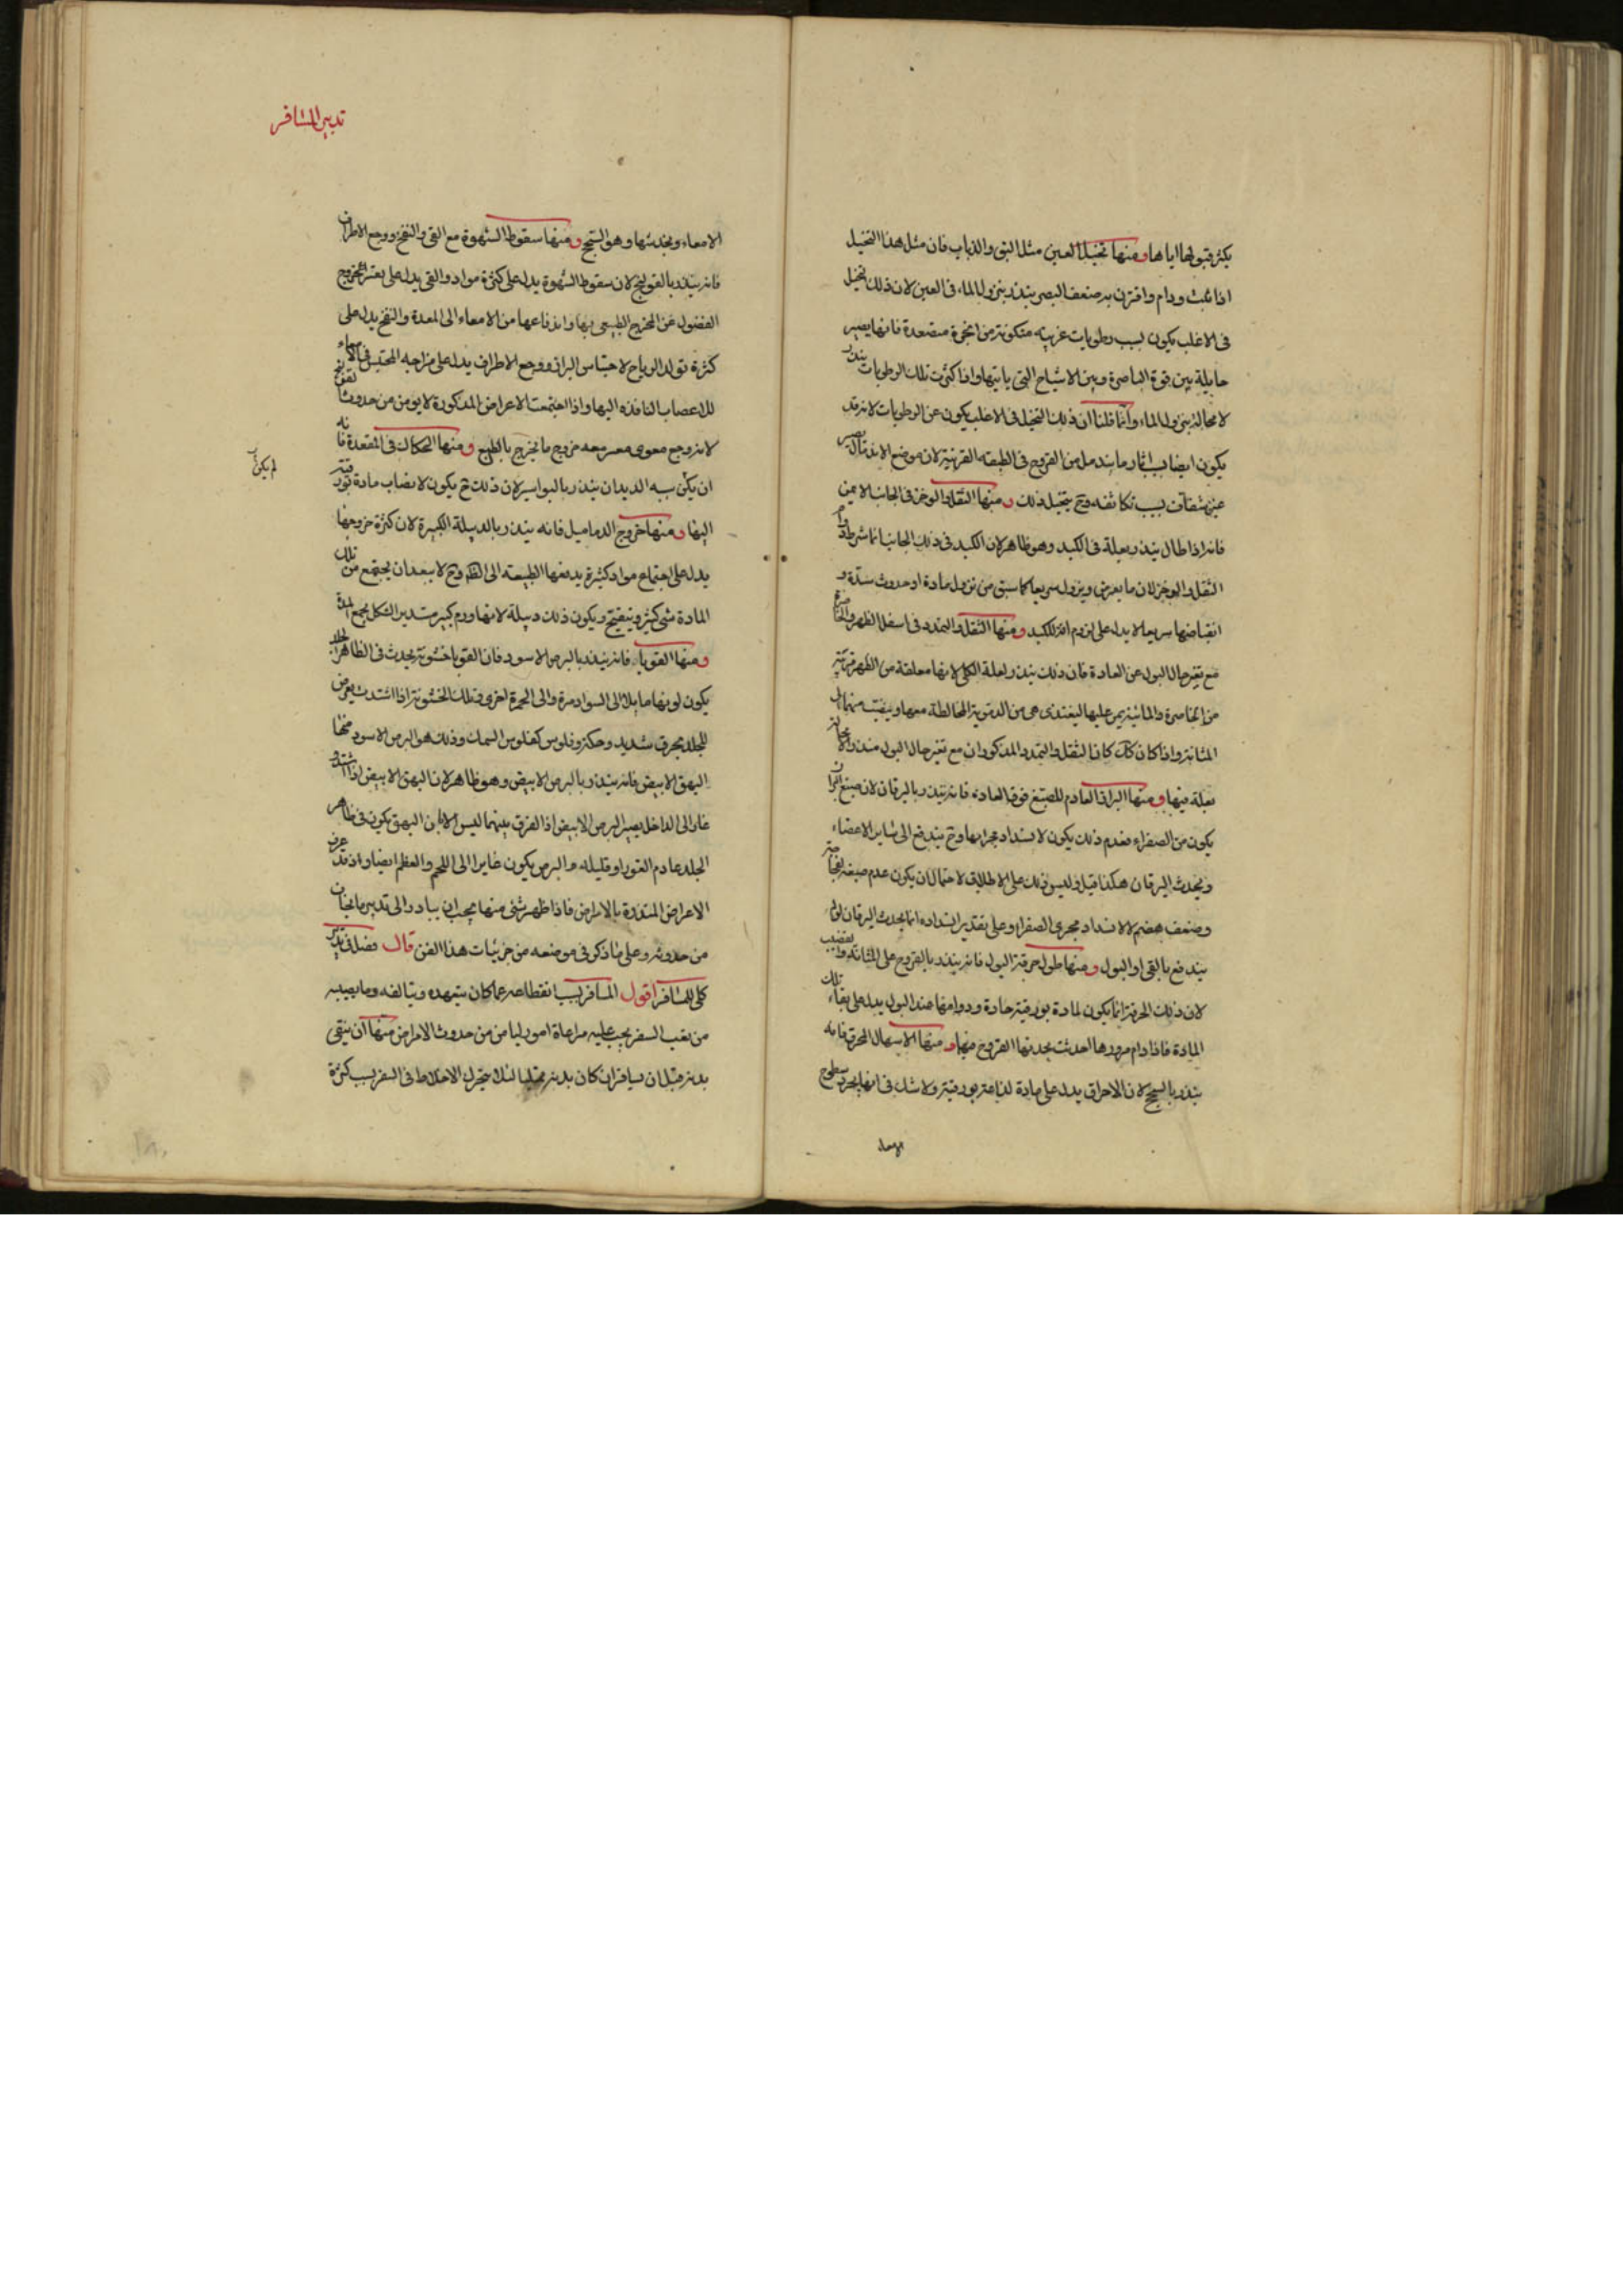 يكثر قبولها اياها ومنها تخيل العين مثل البق والذباب فان مثل هذا التخيل
اذا ثبت ودام واقترن به ضعف البصر ينذر بنزول الماء فى العين لان ذلك التخيل
فى الاغلب يكون بسبب رطوبات غريبة متكونة من ابخرة متصعدة فانها يصير
حايلة بين قوة الباصرة وبين الاشباح التى ياتيها واذا كثرت تلك الرطوبات ينذر
لا محالة بنزول الماء وانما قلنا ان ذلك التخيل فى الاغلب يكون عن الرطوبات لانه قد
يكون ايضا بسبب اثار ما يندمل من القروح فى الطبقة القرنية لان موضع الاندمال يصير
غير شفاف بسبب تكاثفه وح يتخيل ذلك ومنها الثقل والوخز فى الجانب الايمن
فانه اذا طال ينذر بعلة فى الكبد وهو ظاهر لان الكبد فى ذلك الجانب انما شرط دوام
الثقل والوخز لان ما يعرض ويزول سريعا كما سبق من نزول مادة او حدوث سدة و
انقباضها سريعا لا يدل على لزوم افة للكبد ومنها الثقل والتمدد فى اسفل الظهر والخاصرة
مع تغير حال البول عن العادة فان ذلك ينذر بعلة الكلى لانها معلقة من الظهر قريبة
من الخاصرة والمائية يمر عليها ليغتذى هى من الدموية المخالطة معها وينفث منها الى
المثانة واذا كان كك كان الثقل والتمدد المذكوران مع تغير حال البول منذرا لا محالة
بعلة فيها ومنها البراز العادم للصبغ فوق العادة فانه ينذر باليرقان لان صبغ البراز
يكون من الصفراء فعدم ذلك يكون لانسداد مجراها وح يندفع الى سائر الاعضاء
ويحدث اليرقان هكذا قيل وليس ذلك على الاطلاق لاحتمال ان يكون عدم صبغه لفجاجته
وضعف هضم لا لانسداد مجرى الصفراء وعلى تقدير انسداده انما يحدث اليرقان لو لم
يندفع بالقى او البول ومنها طول حرقة البول فانه ينذر بالقروح على المثانة والقضيب
لان ذلك الحرقة انما يكون لمادة بورقية حادة ودوامها عند البول يدل على بقاء تلك
المادة فاذا دام مرورها احدثت بحدتها القروح فيها ومنها الاسهال المحرق فانه
ينذر بالسحج لان الاحراق يدل على مادة لذاعة بورقية ولا شك فى انها يجرد سطوح
الامعاء
تدبير المسافر
الامعاء ويخدشها وهو السحج ومنها سقوط الشهوة مع القى والنفخ ووجع الاطراف
فانه ينذر بالقولنج لان سقوط الشهوة يدل على كثرة مواد والقى يدل على تعسر الخروج
الفضول عن المخرج الطبيعى بها واندفاعها من الامعاء الى المعدة والنفخ يدل على
كثرة تولد الرياح لاحتباس البراز ووجع الاطراف يدل على مزاحمة المحتبس فى الامعاء
للاعصاب النافذه اليها واذا اجتمعت الاعراض المذكورة لا يومن من حدوث القولنج
لانه وجع معوى معسر معه خروج ما يخرج بالطبع ومنها الحكاك فى المقعدة فانه
ان يكن به الديدان ينذر بالبواسير لان ذلك ح يكون لانصباب مادة بورقية
لم يكن
اليها ومنها خروج الدماميل فانه ينذر بالدبيلة الكبيرة لان كثرة خروجها
يدل على اجتماع مواد كثيرة يدفعها الطبيعة الى الظ وح لا يبعد ان يجتمع من تلك
المادة شى كثير ويتقيح ويكون ذلك دبيلة لانها ورم كبير مستدير الشكل يجمع المدة
ومنها القوبا فانه ينذر بالبرص الاسود فان القوبا خشونة يحدث فى الظاهر الجلد
يكون لونها مايلا الى السواد مرة والى الحمرة اخرى وتلك الخشونة اذا اشتدت يعرض
للجلد تحرق شديد وحكة وفلوس كفلوس السمك وذلك هو البرص الاسود منها
البهق الابيض فانه ينذر بالبرص الابيض وهو ظاهر لان البهق الابيض اذا اشتد و
غار الى الداخل يصير البرص الابيض اذ الفرق بينهما ليس الا بان البهق يكون فى ظاهر
الجلد عادم الغور او قليله والبرص يكون غايرا الى اللحم والعظم ايضا واذ قد عرف
الاعراض المنذرة بالامراض فاذا ظهر شى منها يجب ان يبادر الى تدبير ما يخاف
من حدوثه وعلى ما ذكر فى موضعه من جزئيات هذا الفن قال فصل فى تدبير
كلى للمسافر اقول المسافر بسبب انقطاعه عما كان يتعهده ويتالفه وما يصيبه
من تعب السفر يجب عليه مراعاة امور ليامن من حدوث الامراض منها ان ينقى
بدنه قبل ان يسافر ان كان بدنه ممتليا لئلا يتحرك الاخلاط فى السفر بسبب كثرة